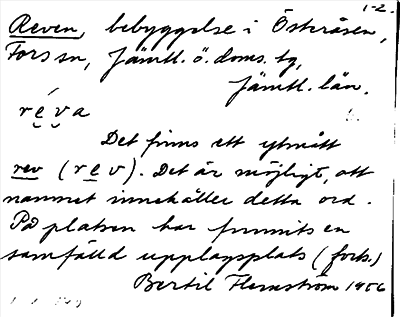 1-2.
Reven, bebyggelse i Österåsen,
Fors sn, Jämtl. ö. doms. tg,
Jämtl. län.
re̬´v̬a
Det finns ett ytmått
rev (re̬v). Det är möjligt, att
namnet innehåller detta ord.
På platsen har funnits en
samfälld upplagsplats (forts.)
Bertil Flemström 1956